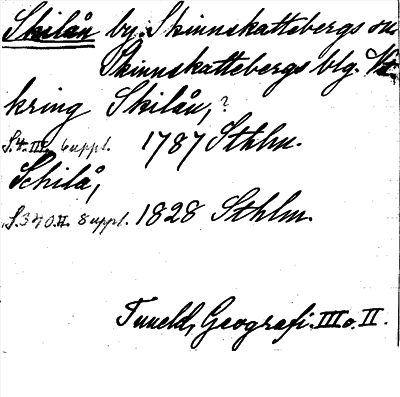 Skilån by. Skinnskattebergs sn.
Skinnskattebergs blg.
kring Skilån,?
S.4.III. 6 uppl. 1787 Sthlm.
Schilå,
S.340.II. 8 uppl. 1828 Sthlm.
Tuneld, Geografi. III o. II.